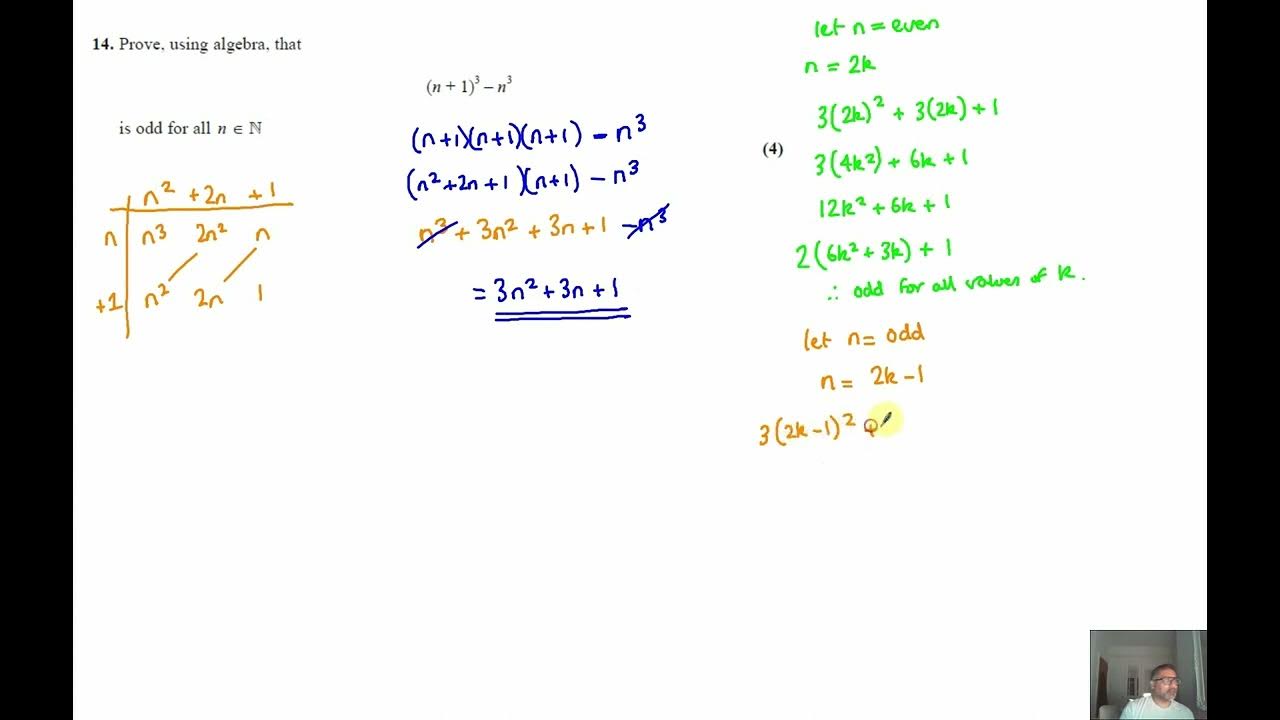 14. Prove, using algebra, that
(n + 1)³ – n³
is odd for all n ∈ ℕ
(4)
n² +2n +1
n n³ 2n² n
+1 n² 2n 1
(n+1)(n+1)(n+1) – n³
(n²+2n+1)(n+1) – n³
n³ + 3n² + 3n + 1 – n³
= 3n² + 3n + 1
let n = even
n = 2k
3(2k)² + 3(2k) + 1
3(4k²) + 6k + 1
12k² + 6k + 1
2(6k² + 3k) + 1
∴ odd for all values of k.
let n = odd
n = 2k – 1
3(2k – 1)² +